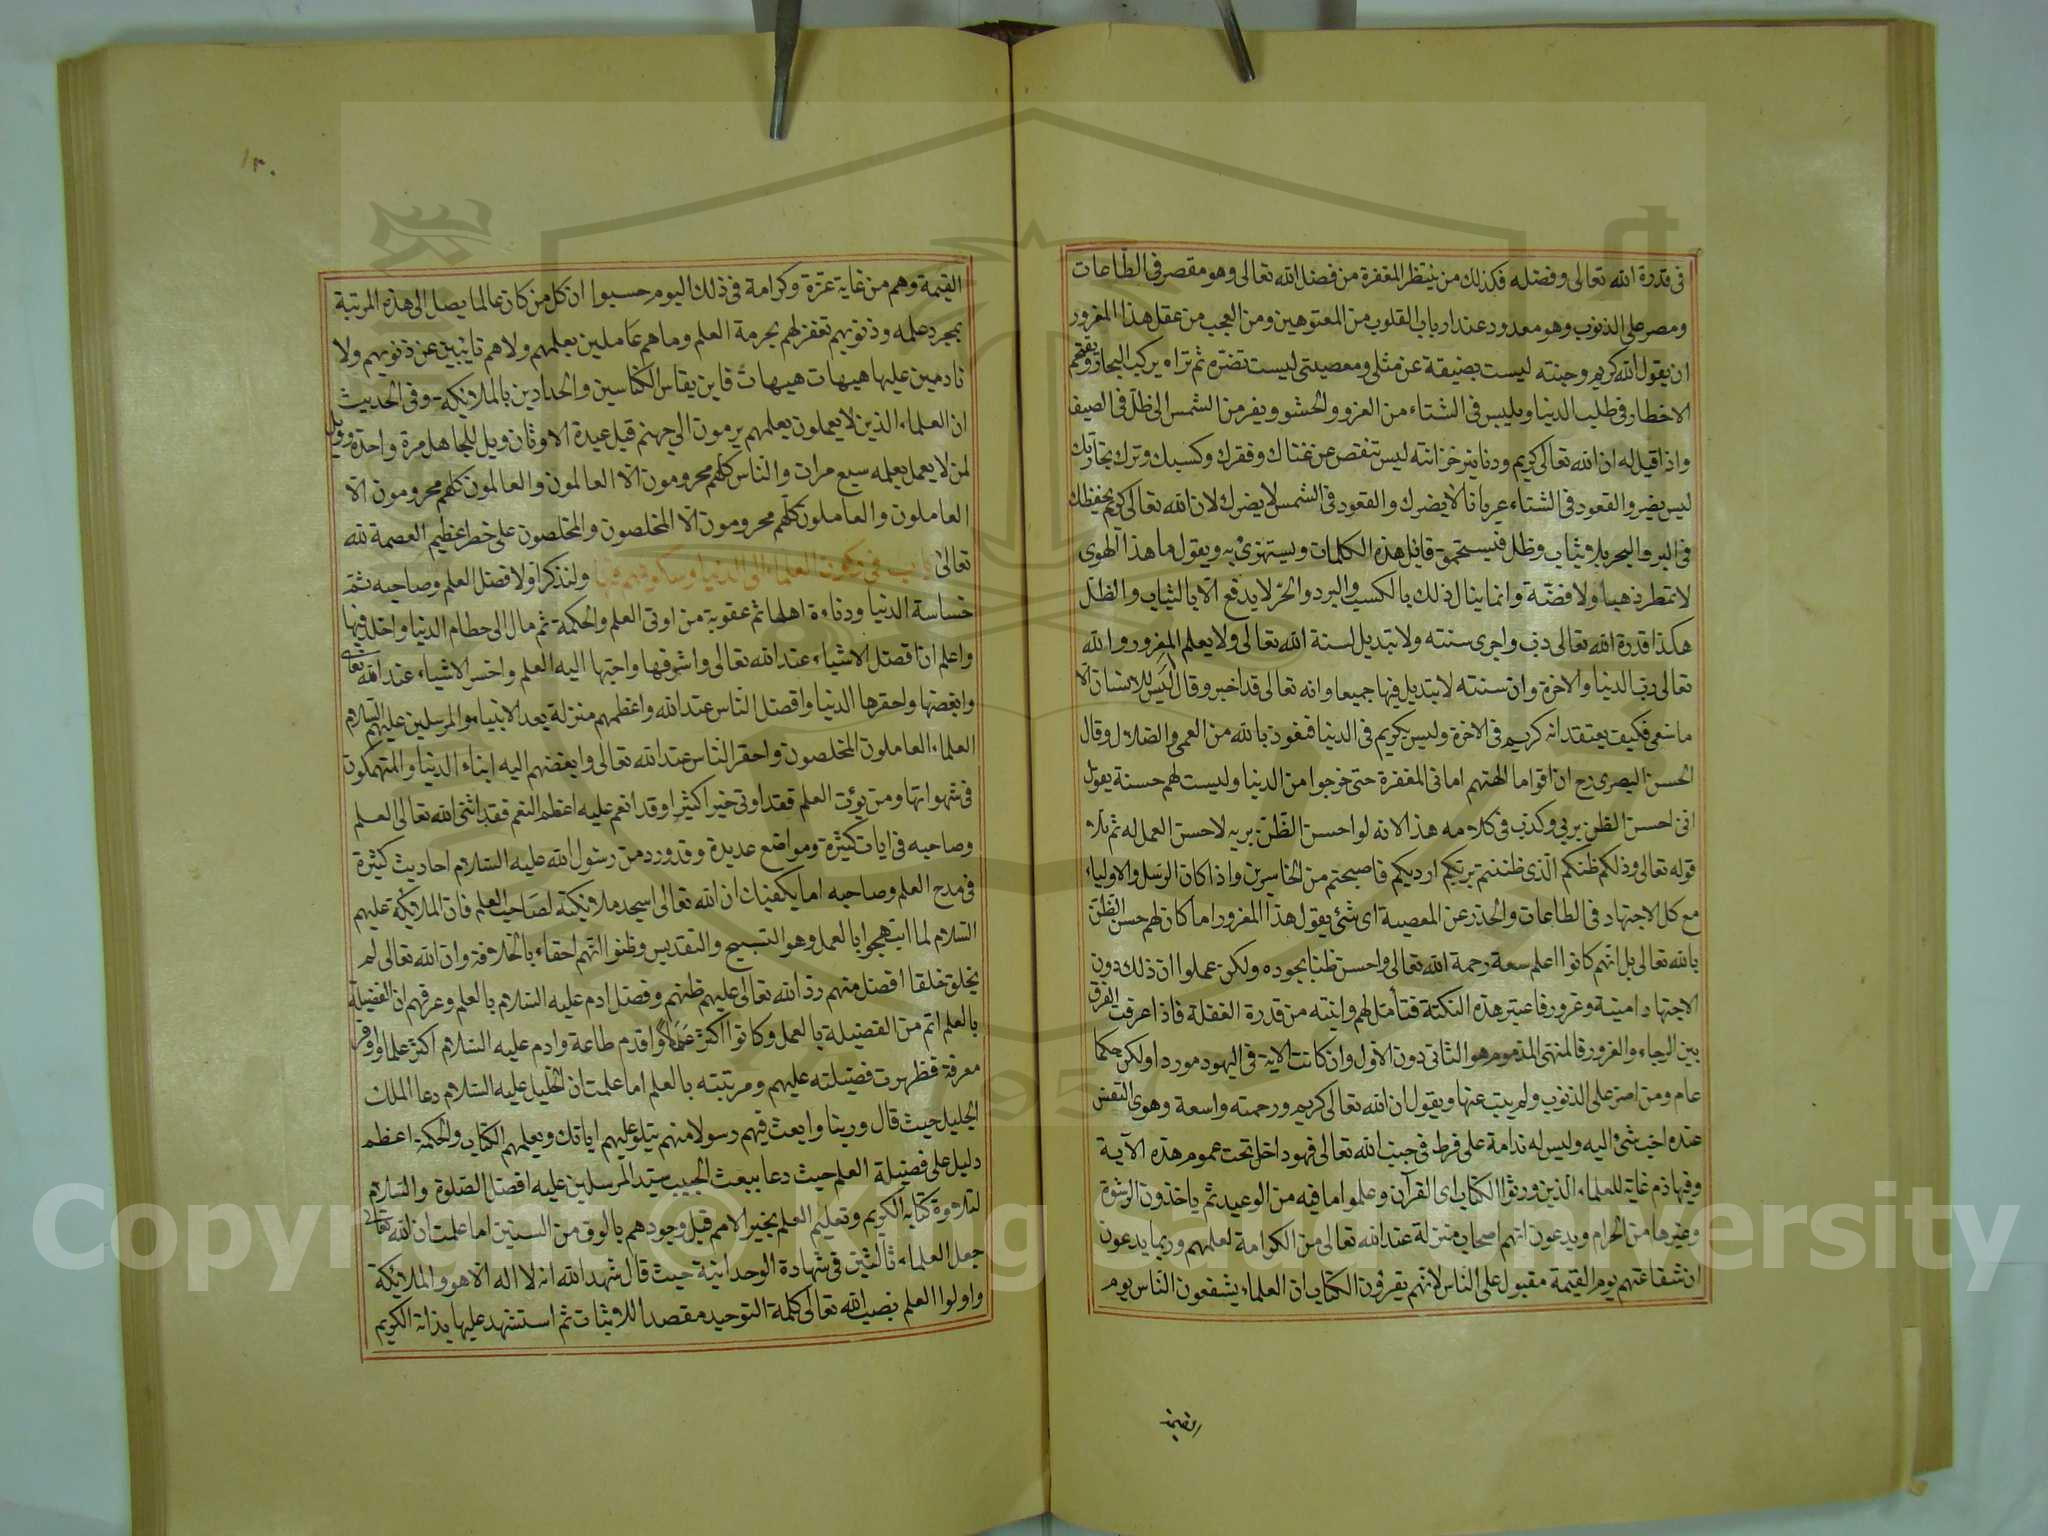 فى قدرة الله تعالى وفضله فكذلك من ينتظر المغفرة من فضل الله تعالى وهو مقصر فى الطاعات
ومصر على الذنوب وهو معدود عند ارباب القلوب من المعتوهين ومن العجب من عقل هذا المغرور
ان يقول الله كريم وجنته ليست بضيقة عن مثلى ومعصيتى ليست تضره ثم تراه يركب البحار ويقتحم
الاخطار فى طلب الدنيا ويلبس فى الشتاء من الغزو والحشو ويفر من الشمس الى ظل فى الصيف
واذا قيل له ان الله تعالى كريم ودنانير خزائنه ليس تنقص عن غنتاك وفقرك وكسبك وترك تجارتك
ليس يضر والقعود فى الشتاء عريانا لا يضرك والقعود فى الشمس لا يضرك لان الله تعالى كريم يحفظك
فى البر والبحر بلا وثياب وظل فيستحمق قائل هذه الكلمات ويستهزئ به ويقول ما هذا الهوى
لا تمطر ذهبا ولا فضة وانما ينال ذلك بالكسب والبرد والحر لا يدفع الا بالثياب والظل
هكذا قدرة الله تعالى دبت واجرى سنته ولا تبديل لسنة الله تعالى ولا يعلم المغرور والله
تعالى رب الدنيا والاخرة وان سنته لا تبديل فيها جميعا وانه تعالى قد اخبر وقال ليس للانسان الا
ما سعى فكيف يعتقد انه كريم فى الاخرة وليس بكريم فى الدنيا فنعوذ بالله من العمى والضلال وقال
الحسن البصرى رح ان اقواما الهتهم امانى المغفرة حتى خرجوا من الدنيا وليست لهم حسنة يقول
انى احسن الظن بربى وكذب فى كلامه هذا لانه لو احسن الظن بربه لاحسن العمل له ثم تلا
قوله تعالى وذلكم ظنكم الذى ظننتم بربكم ارديكم فاصبحتم من الخاسرين واذا كان الرسل والاولياء
مع كل الاجتهاد فى الطاعات والحذر عن المعصية اى شئ يقول هذا المغرور اما كان لهم حسن الظن
بالله تعالى بل انهم كانوا اعلم سعة رحمة الله تعالى واحسن ظنا بجوده ولكن عملوا ان ذلك دون
الاجتهاد امنية وغرور فاعتبر هذه النكتة فتأمل لهم وانته من قدرة الغفلة فاذا عرفت الفرق
بين الرجاء والغرور فالمنهى المذموم هو الثانى دون الاول وان كانت الاية فى اليهود موردا ولكن حكما
عام ومن اصر على الذنوب ولم يتب عنها ويقول ان الله تعالى كريم ورحمته واسعة وهوى النفس
عنده احب شئ اليه وليس له ندامة على فرط فى جنب الله تعالى فهو داخل تحت عموم هذه الآية
وفيها ذم غاية للعلماء الذين ورثوا الكتاب اى القرآن وعلموا ما فيه من الوعيد ثم ياخذون الرشوة
وغيرها من الحرام ويدعون انهم اصحاب منزلة عند الله تعالى من الكرامة لعلمهم وربما يدعون
ان شفاعتهم يوم القيمة مقبول على الناس لانهم يقرؤن الكتاب ان العلماء يشفعون الناس يوم
١٣٠
القيمة وهم من غاية عزة وكرامة فى ذلك اليوم حسبوا ان كل من كان عالما يصل الى هذه المرتبة
بمجرد علمه وذنوبهم تغفر لهم بحرمة العلم وما هم عاملين بعلمهم ولا هم تايبين عن ذنوبهم ولا
نادمين عليها هيهات هيهات فاين يقاس الكناسين والحدادين بالملائكة وفى الحديث
ان العلماء الذين لا يعملون بعلمهم يرمون الى جهنم قبل عبدة الاوثان ويل للجاهل مرة واحدة وويل
لمن لا يعمل بعلمه سبع مرات والناس كلهم محرومون الا العالمون والعالمون كلهم محرومون الا
العاملون والعاملون كلهم محرومون الا المخلصون والمخلصون على خطر عظيم العصمة لله
تعالى باب فى ركون العلماء الى الدنيا وسكونهم فيها ولنذكر اولا فضل العلم وصاحبه ثم
خساسة الدنيا ودناءة اهلها ثم عقوبة من اوتى العلم والحكمة ثم مال الى حطام الدنيا واخلد فيها
واعلم ان افضل الاشياء عند الله تعالى واشرفها واحبها اليه العلم واخس الاشياء عند الله تعالى
وابغضها واحقرها الدنيا وافضل الناس عند الله واعظمهم منزلة بعد الانبياء والمرسلين عليهم السلام
العلماء العاملون المخلصون واحقر الناس عند الله تعالى وابغضهم اليه ابناء الدنيا والمنهمكون
فى شهواتها ومن يؤت العلم فقد اوتى خيرا كثيرا وقد انعم عليه اعظم النعم فقد اثنى الله تعالى العلم
وصاحبه فى ايات كثيرة ومواضع عديدة وقد ورد من رسول الله عليه السلام احاديث كثيرة
فى مدح العلم وصاحبه اما يكفيك ان الله تعالى اسجد ملائكته لصاحب العلم فان الملائكة عليهم
السلام لما ابتهجوا بالعمل وهو التسبيح والتقديس وظنوا انهم احقاء بالخلافة وان الله تعالى لم
يخلق خلقا افضل منهم رد الله تعالى عليهم ظنهم وفضل ادم عليه السلام بالعلم وعرفهم ان الفضيلة
بالعلم اتم من الفضيلة بالعمل وكانوا اكثر عملا واقدم طاعة وادم عليه السلام اكثر علما واوفر
معرفة فظهرت فضيلته عليهم ومرتبته بالعلم اما علمت ان الخليل عليه السلام دعا الملك
الجليل حيث قال وربنا وابعث فيهم رسولا منهم يتلو عليهم اياتك ويعلمهم الكتاب والحكمة اعظم
دليل على فضيلة العلم حيث دعا ببعث الحبيب سيد المرسلين عليه افضل الصلوة والسلام
لتلاوة كتابه الكريم وتعليم العلم بخير الامم قبل وجودهم بالوف من السنين اما علمت ان الله تعالى
جعل العلماء ثالثين فى شهادة الوحدانية حيث قال شهد الله انه لا اله الا هو والملائكة
واولوا العلم نصب الله تعالى كلمة التوحيد مقصدا للاثبات ثم استشهد عليها بذاته الكريم
Copyright © King Saud University